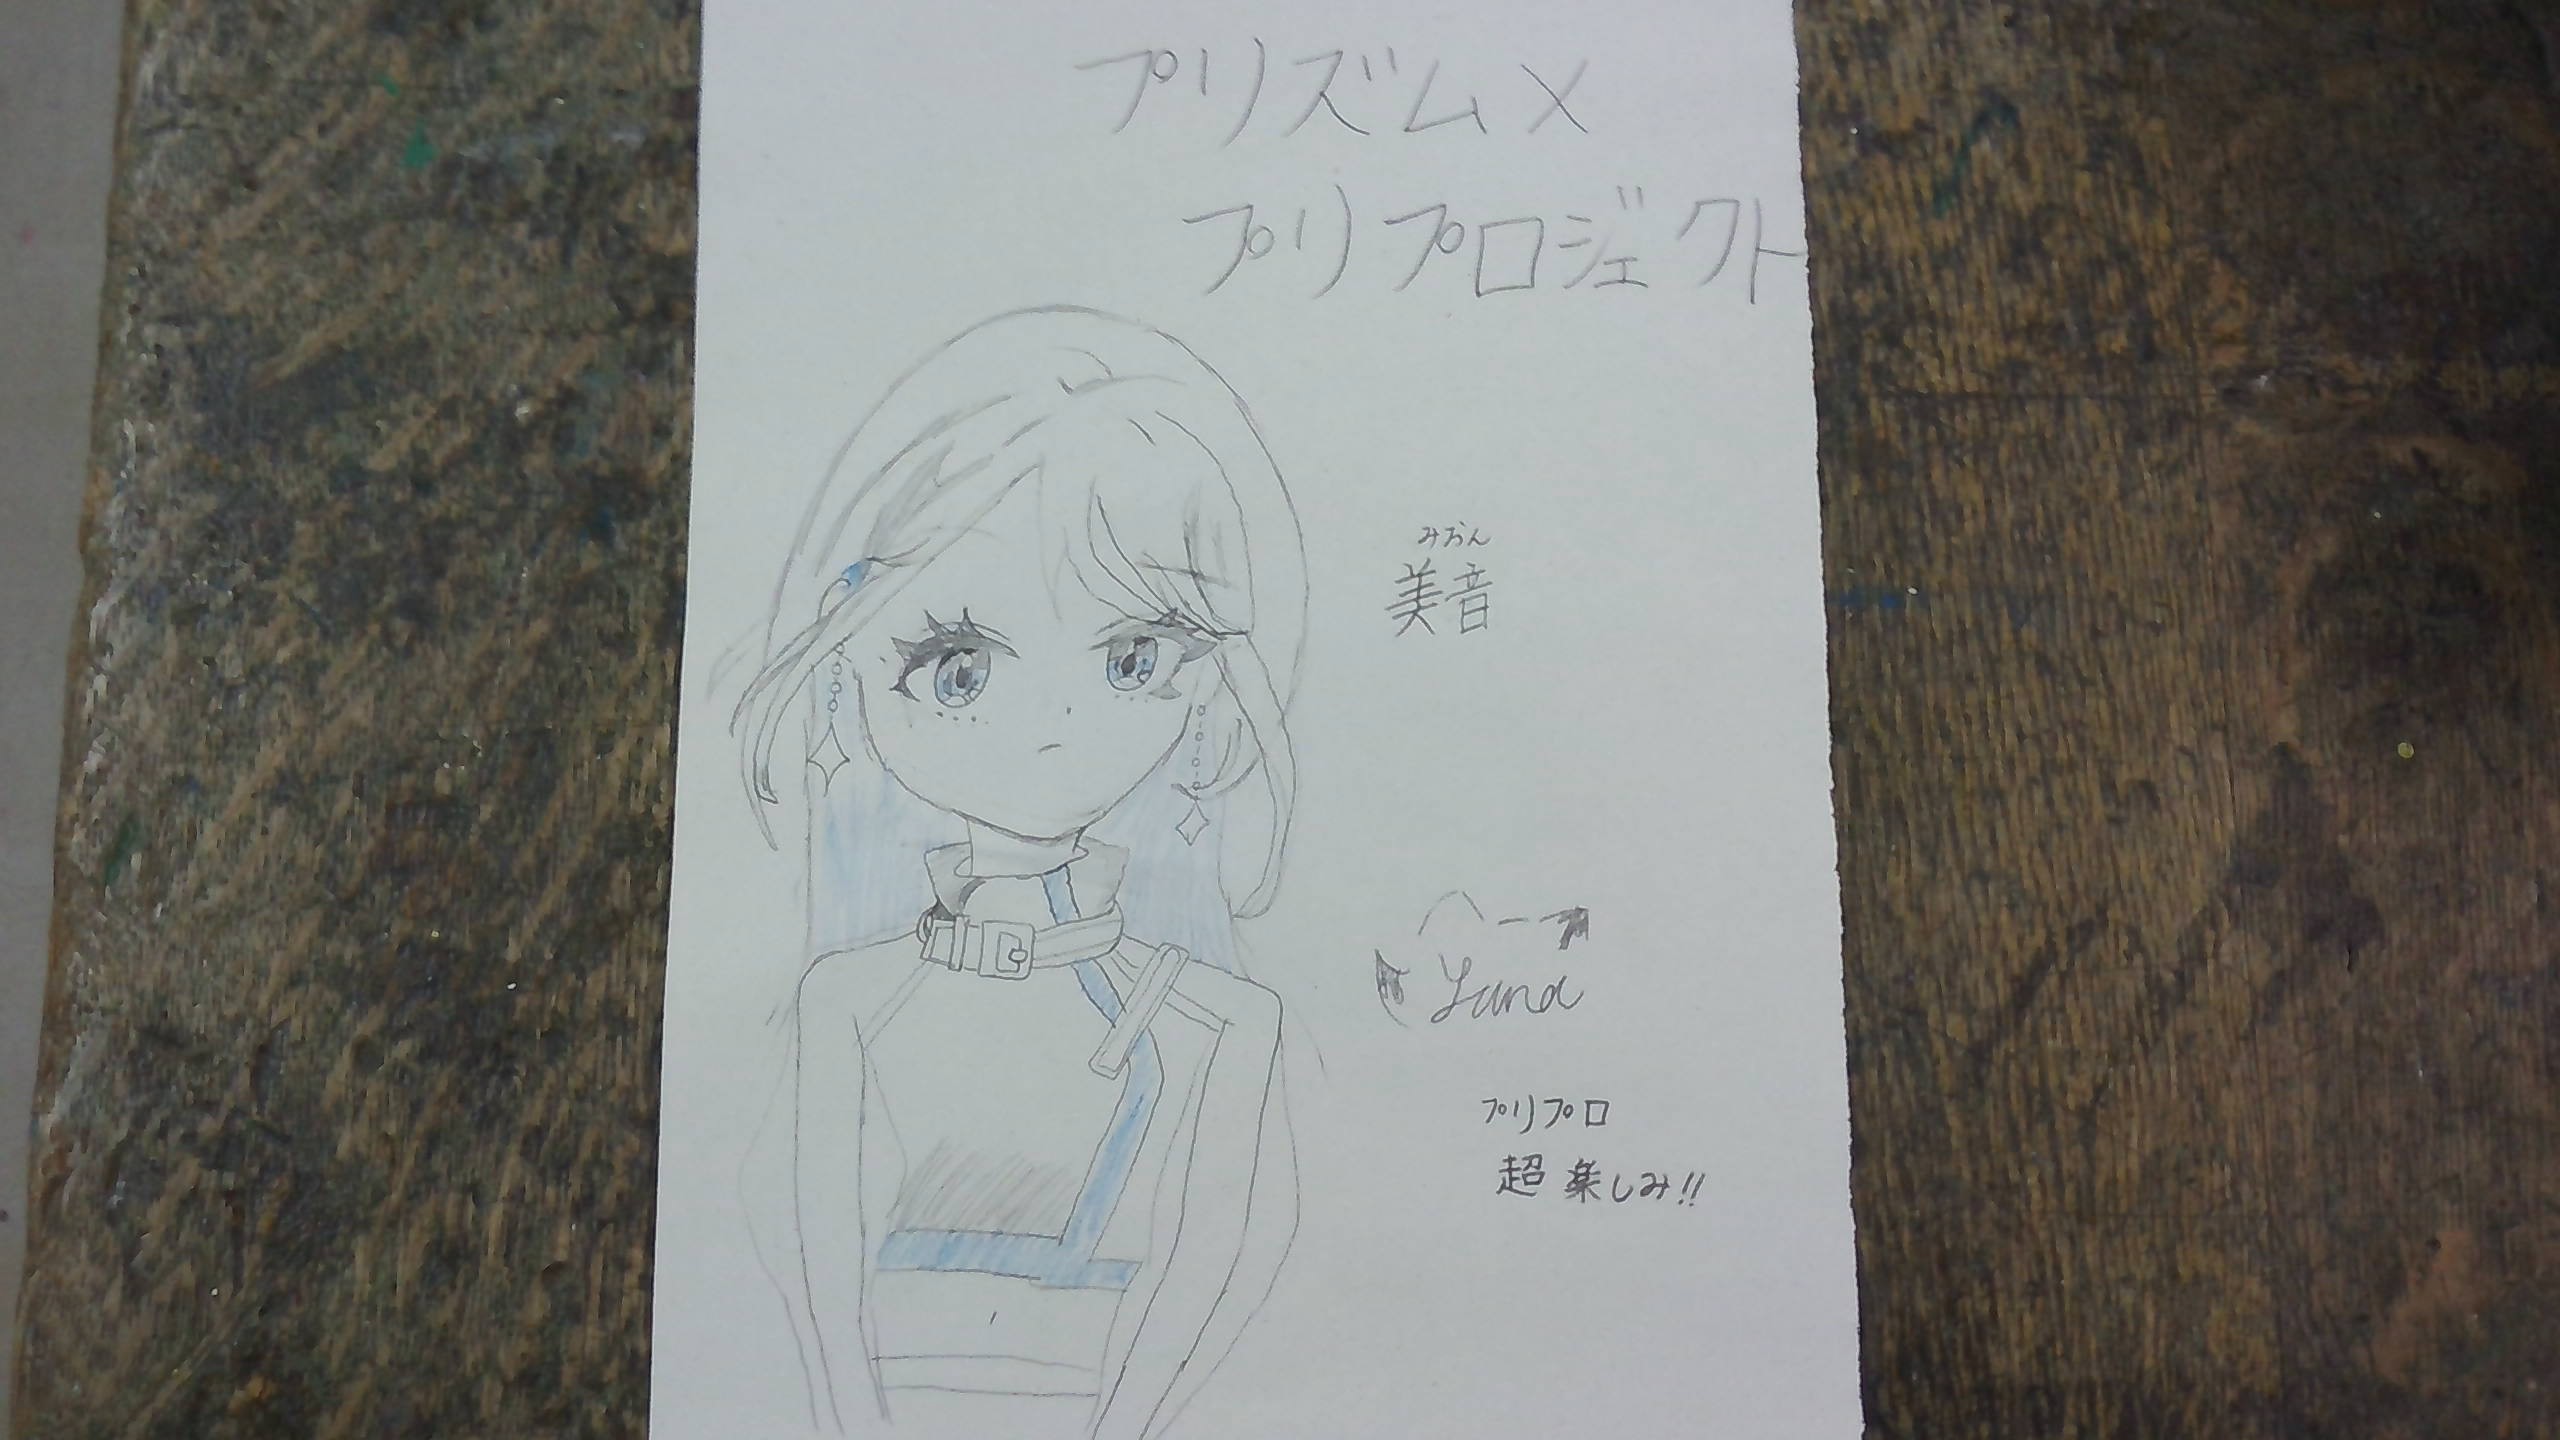 プリズム×
プリプロジェクト
みおん
美音
プリプロ
超楽しみ!!